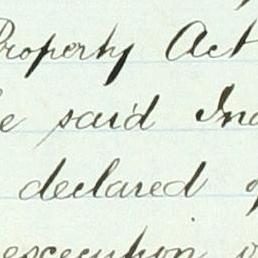 Property Act
said
declared
execution